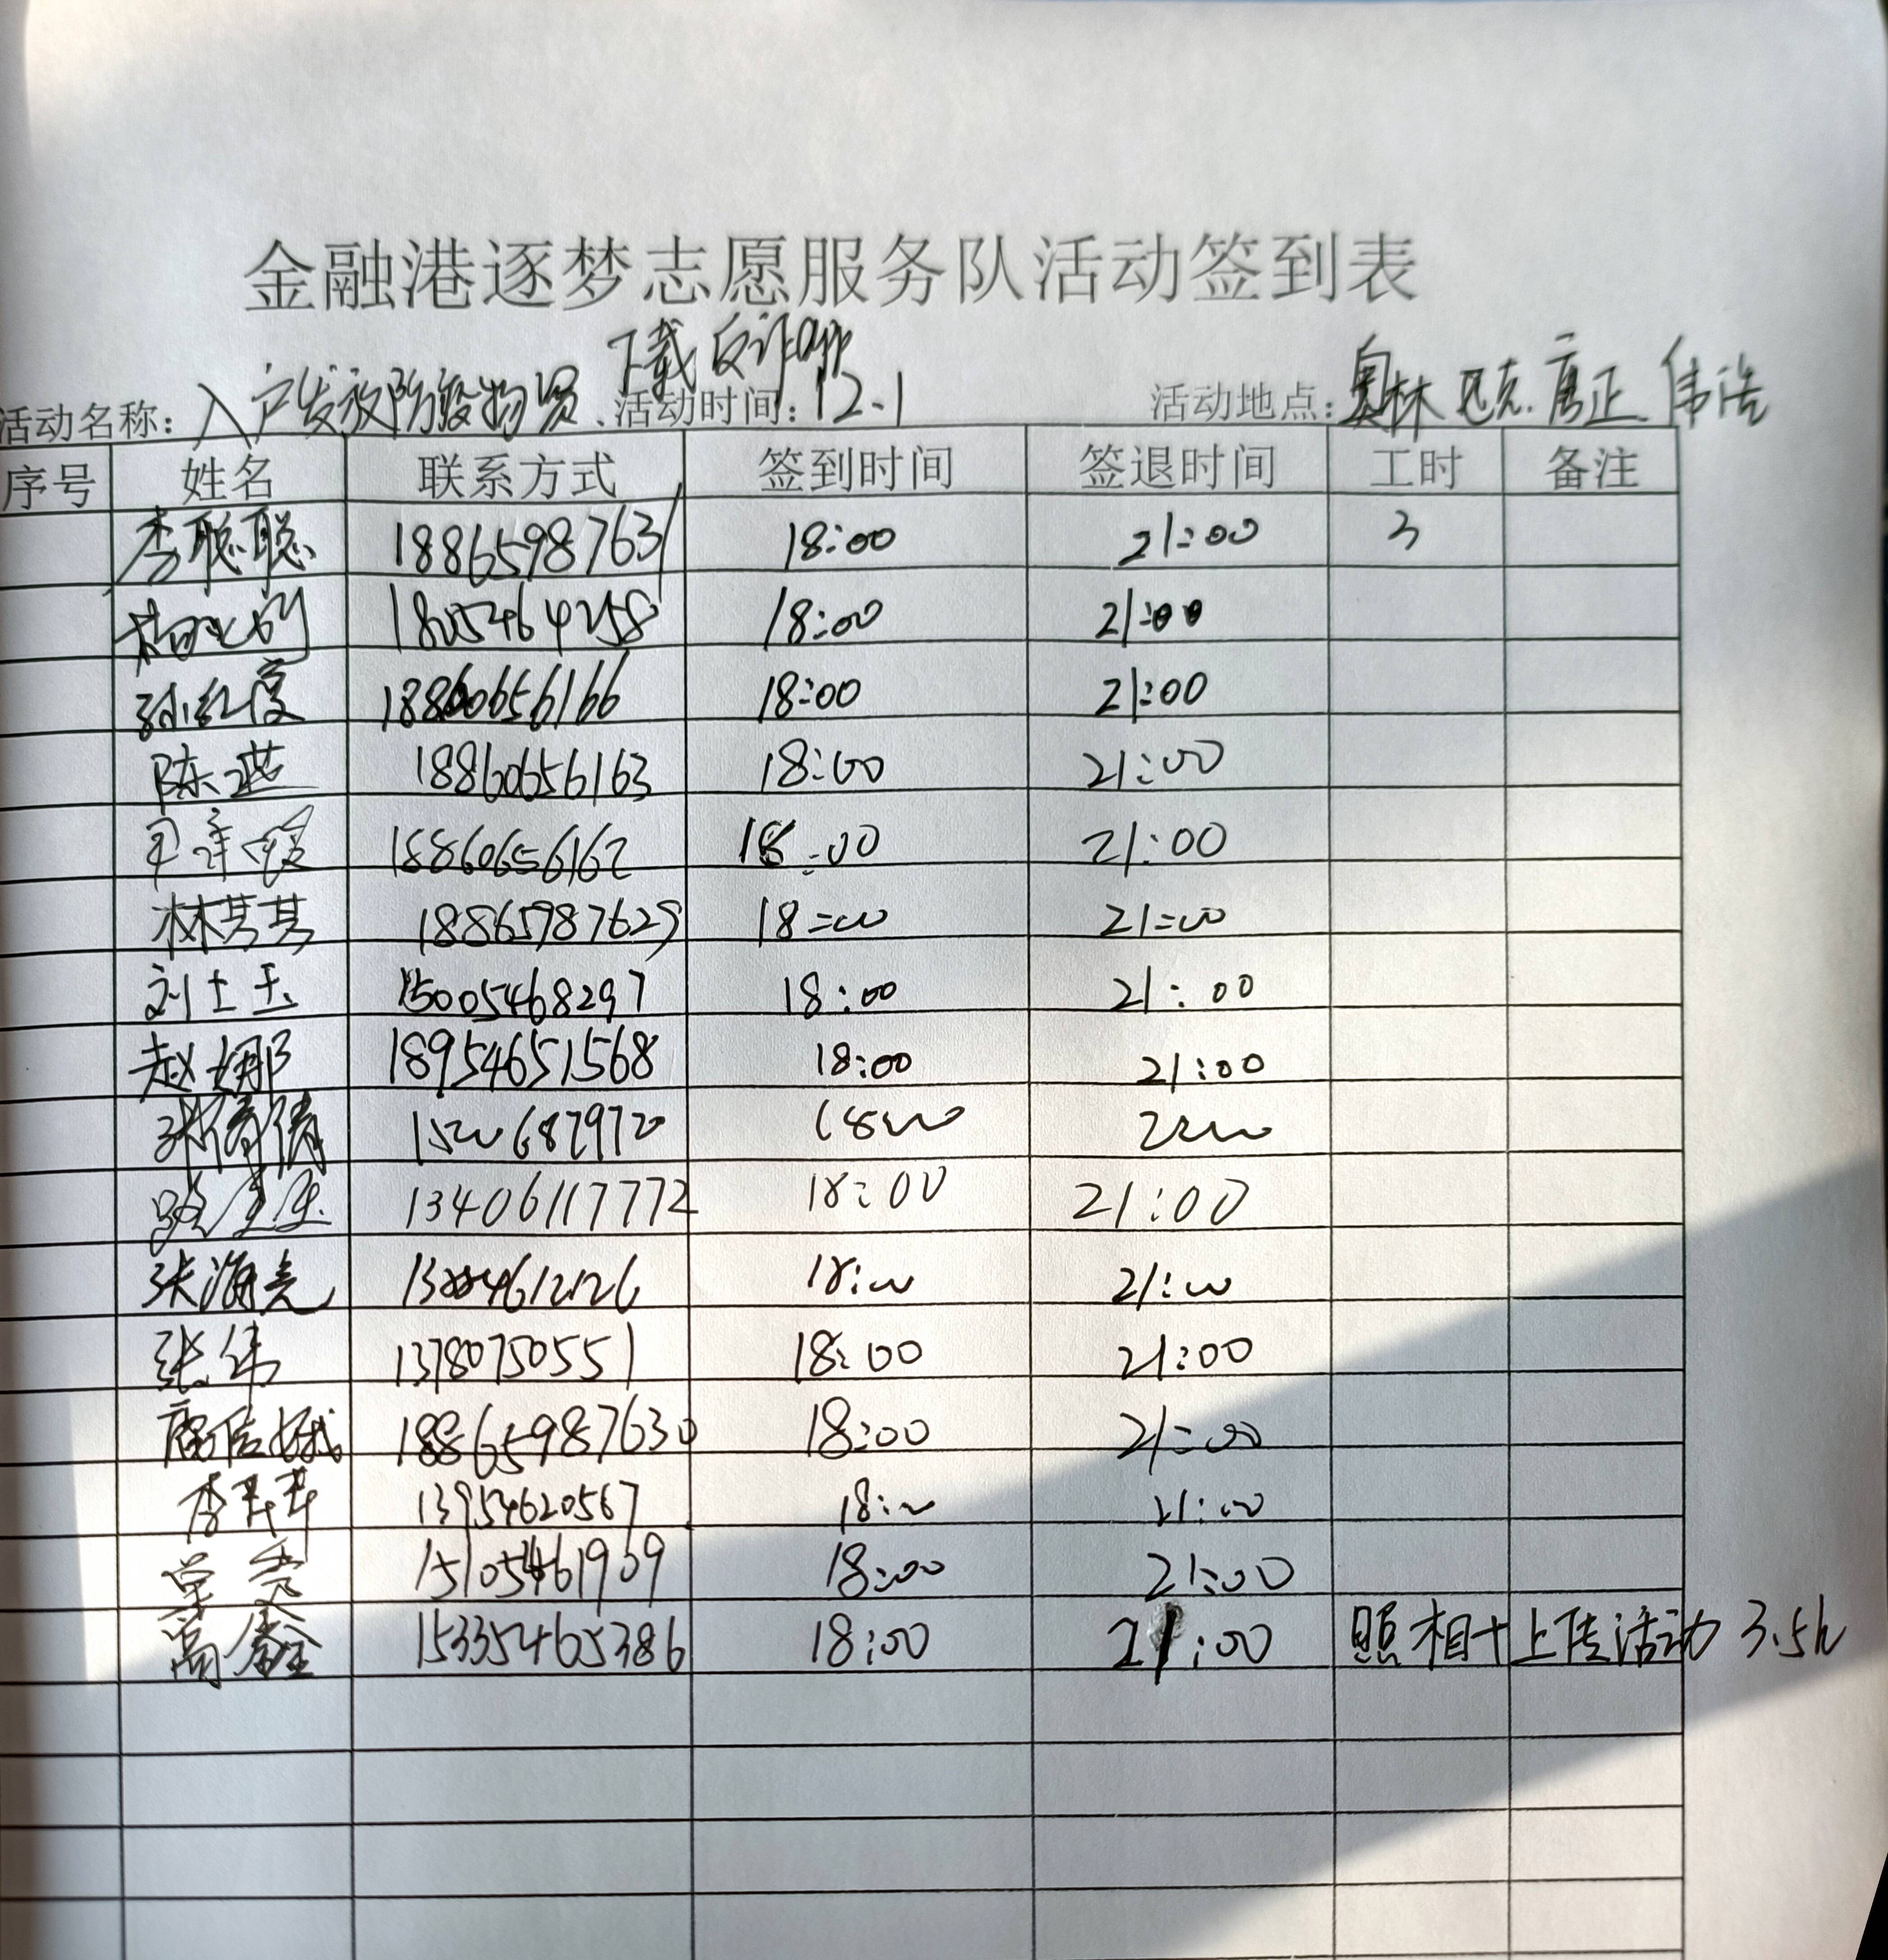 金融港逐梦志愿服务队活动签到表
下载反诈app
活动名称：入户发放防疫物资、活动时间：12.1 活动地点：奥林匹克.唐正.伟浩
序号 姓名 联系方式 签到时间 签退时间 工时 备注
李聪聪 18865987631 18:00 21:00 3
18054264258 18:00 21:00
孙红霞 18860656166 18:00 21:00
陈燕 18860656163 18:00 21:00
18860656162 18:00 21:00
林其其 18865987629 18:00 21:00
刘士玉 15005468297 18:00 21:00
赵娜 18954651568 18:00 21:00
张倩倩 15206879720 18:00
13406117772 18:00 21:00
张海亮 18:00 21:00
张伟 13780750551 18:00 21:00
18865987630 18:00 21:00
李苹苹 13954620567 18:00 21:00
单亮 15105461969 18:00 21:00
高鑫 15335465386 18:00 21:00 照相+上传活动 3.5h